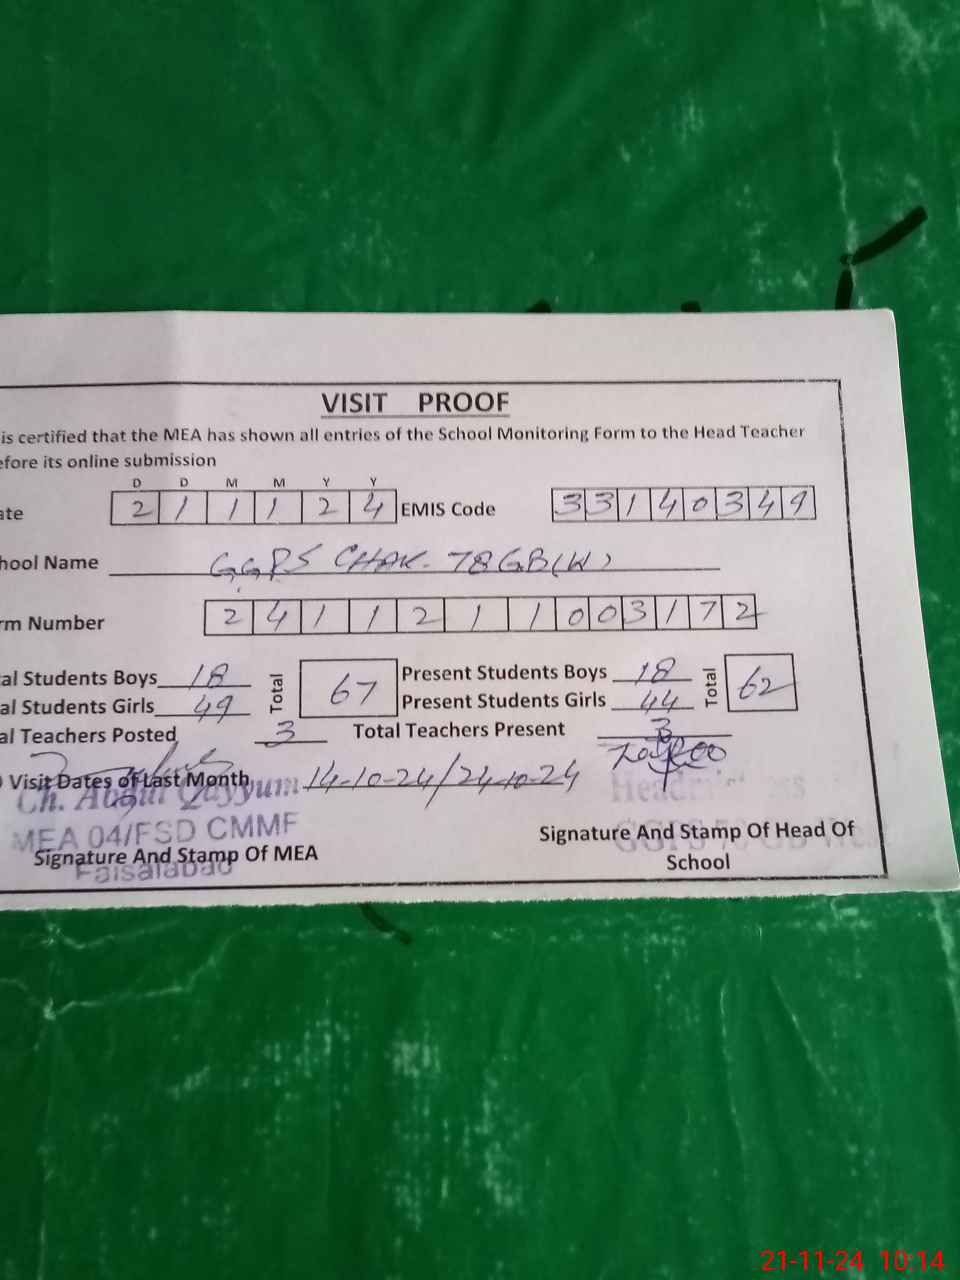 VISIT PROOF
is certified that the MEA has shown all entries of the School Monitoring Form to the Head Teacher
efore its online submission
D D M M Y Y
ate 2 1 1 1 2 4 EMIS Code 3 3 1 4 0 3 4 9
hool Name GGPS CHAK. 78 GB(W)
rm Number 2 4 1 1 2 1 1 0 0 3 1 7 2
al Students Boys 18 Total 67 Present Students Boys 18 Total 62
al Students Girls 49 Present Students Girls 44
al Teachers Posted 3 Total Teachers Present 3
Visit Dates of Last Month 14-10-24/24-10-24
Ch. Abdul Qayyum
MEA 04/FSD CMMF
Faisalabad
Signature And Stamp Of MEA
Signature And Stamp Of Head Of
School
21-11-24 10:14